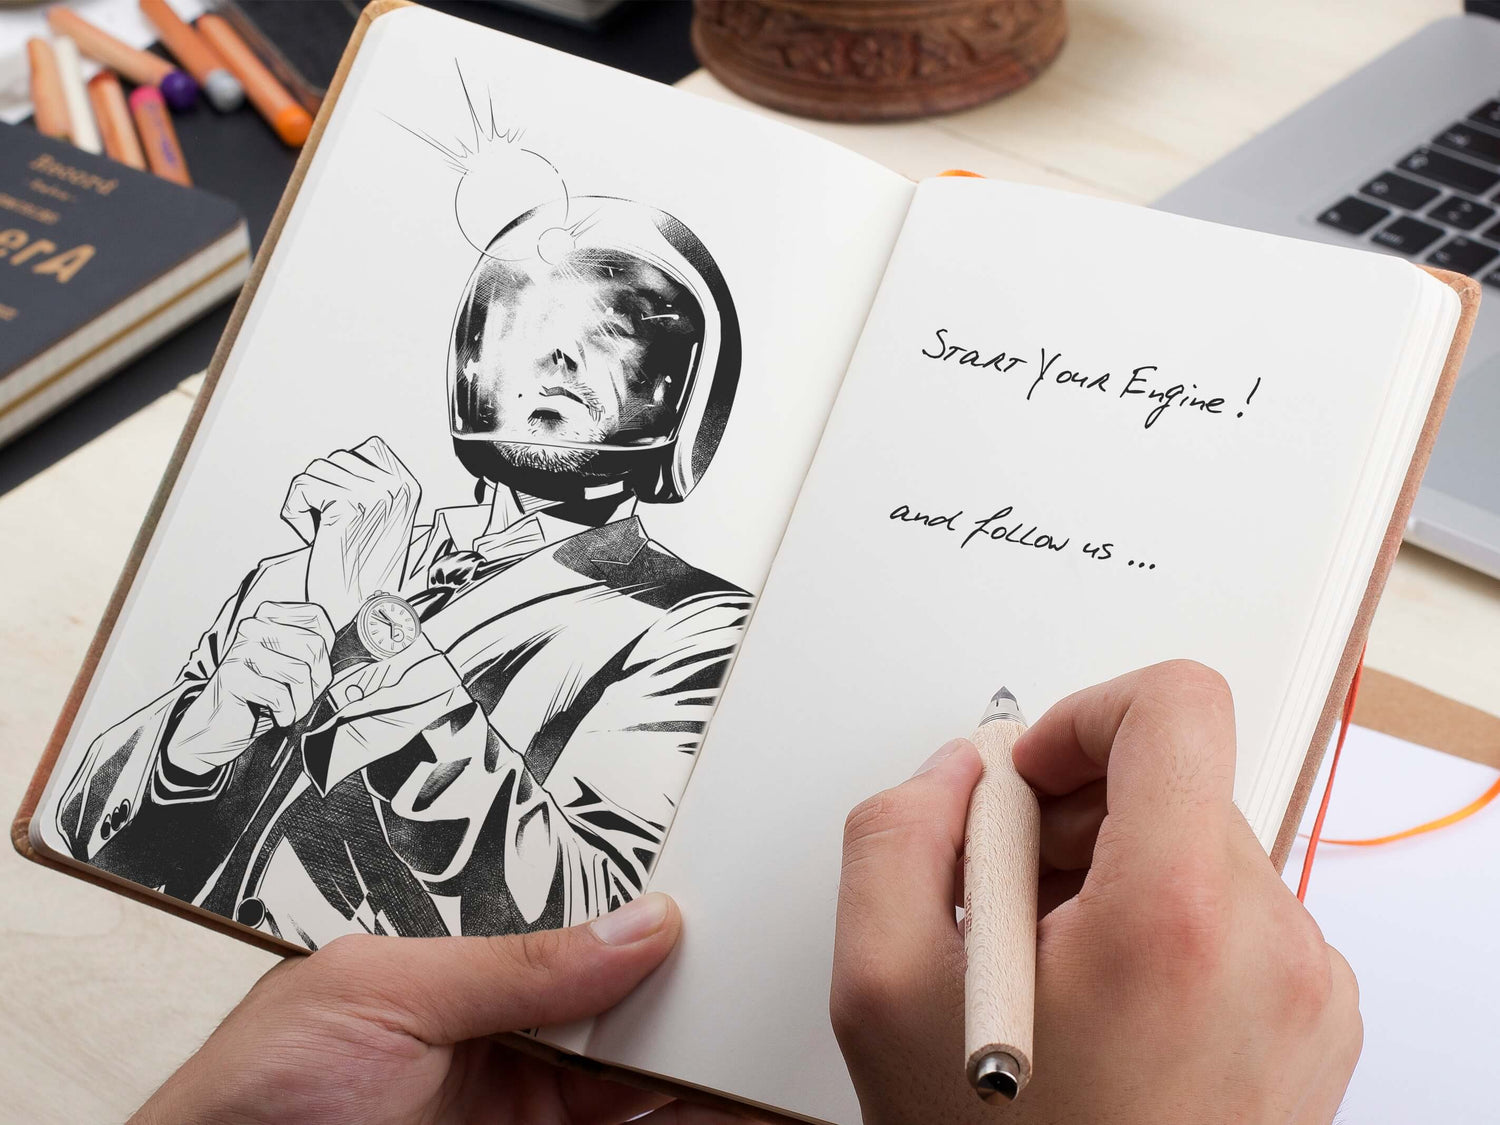 START Your Engine!
and follow us...
Record
erA